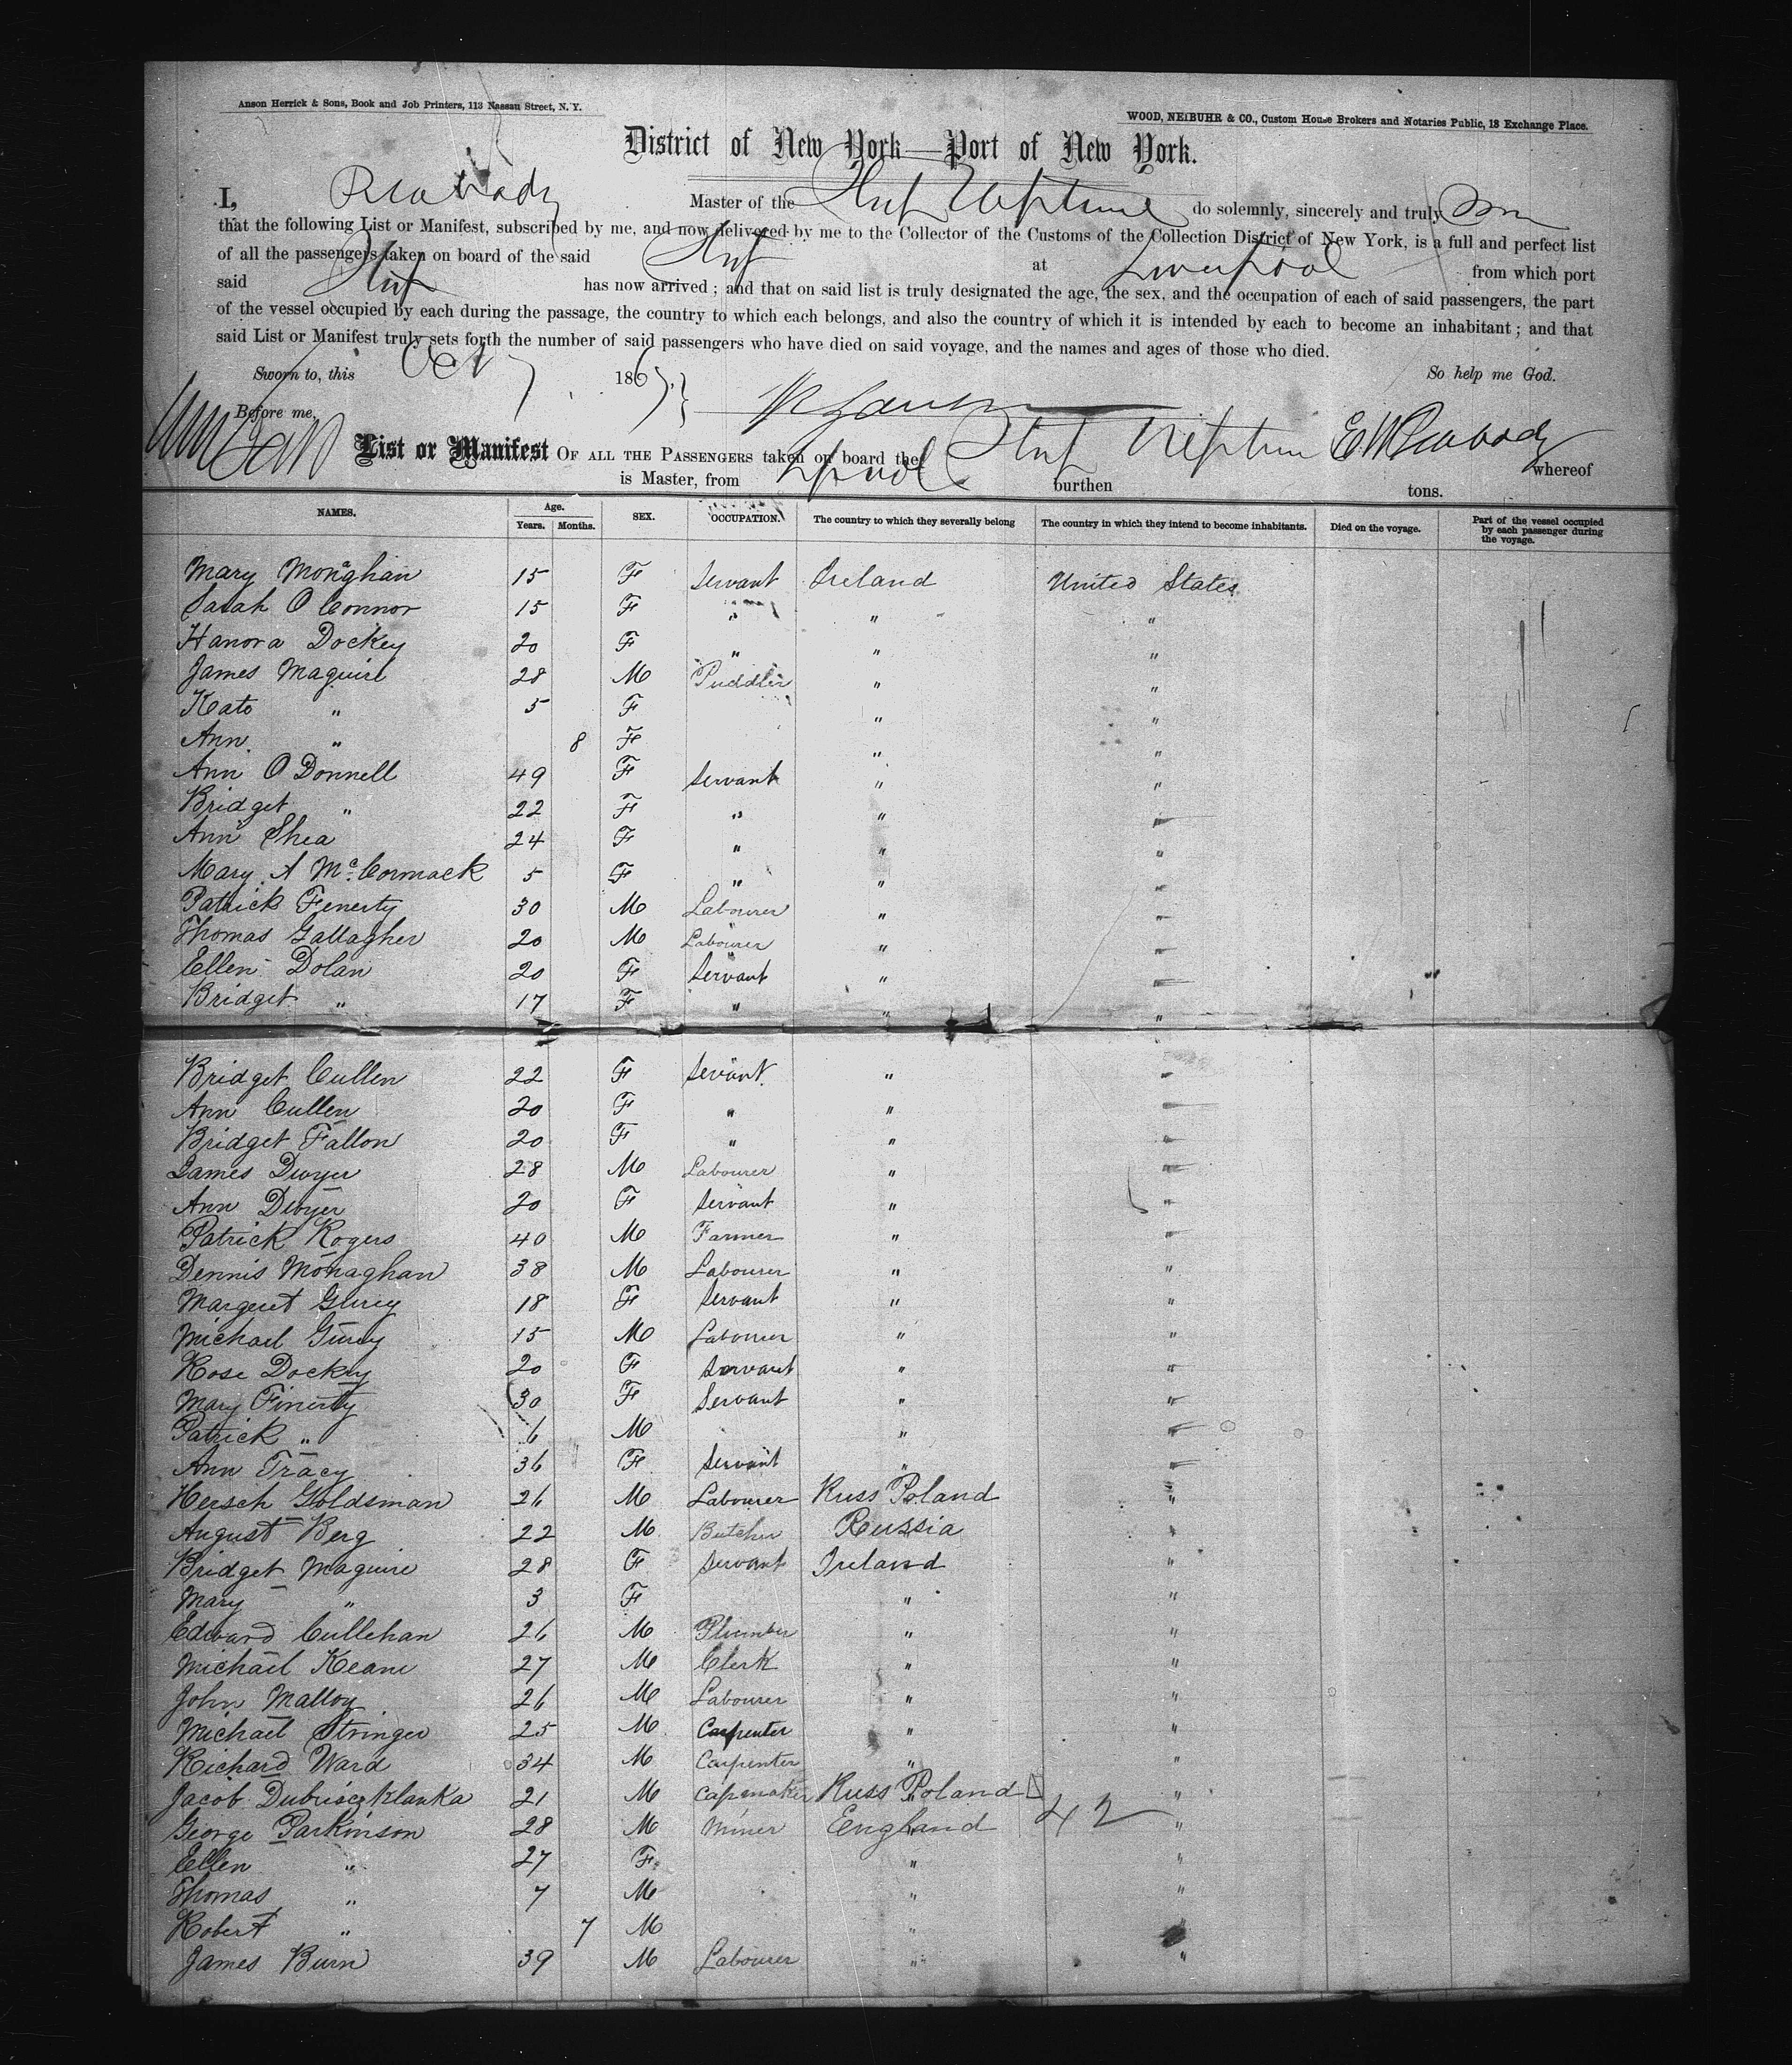 Anson Herrick & Sons, Book and Job Printers, 113 Nassau Street, N. Y.
WOOD, NEIBUHR & CO., Custom House Brokers and Notaries Public, 18 Exchange Place.
District of New York—Port of New York.
I, Peabody Master of the Ship Neptune do solemnly, sincerely and truly
that the following List or Manifest, subscribed by me, and now delivered by me to the Collector of the Customs of the Collection District of New York, is a full and perfect list
of all the passengers taken on board of the said Ship at Liverpool from which port
said Ship has now arrived; and that on said list is truly designated the age, the sex, and the occupation of each of said passengers, the part
of the vessel occupied by each during the passage, the country to which each belongs, and also the country of which it is intended by each to become an inhabitant; and that
said List or Manifest truly sets forth the number of said passengers who have died on said voyage, and the names and ages of those who died.
Sworn to, this Oct 7 1867. So help me God.
Before me,
List or Manifest OF ALL THE PASSENGERS taken on board the Ship Neptune E W Peabody whereof
is Master, from Lpool burthen tons.
NAMES. Age. Years. Months. SEX. OCCUPATION. The country to which they severally belong The country in which they intend to become inhabitants. Died on the voyage. Part of the vessel occupied by each passenger during the voyage.
Mary Monghan 15 F Servant Ireland United States
Sarah O Connor 15 F " " "
Hanora Dockey 20 F " " "
James Maguire 28 M Puddler " "
Kate " 5 F " "
Ann " 8 F " "
Ann O Donnell 49 F Servant " "
Bridget " 22 F " " "
Ann Shea 24 F " " "
Mary A McCormack 5 F " " "
Patrick Fenerty 30 M Labourer " "
Thomas Gallagher 20 M Labourer " "
Ellen Dolan 20 F Servant " "
Bridget " 17 F " " "
Bridget Cullen 22 F Servant " "
Ann Cullen 20 F " " "
Bridget Fallon 20 F " " "
James Dwyer 28 M Labourer " "
Ann Dwyer 20 F Servant " "
Patrick Rogers 40 M Farmer " "
Dennis Monaghan 38 M Labourer " "
Margeret 18 F Servant " "
Michael 15 M Labourer " "
Rose Dockey 20 F Servant " "
Mary Finerty 30 F Servant " "
Patrick " 6 M " "
Ann Tracy 36 F Servant " "
Hersch Goldsman 26 M Labourer Russ Poland "
August Berg 22 M Butcher Russia "
Bridget Maguire 28 F Servant Ireland "
Mary " 3 F " "
Edward Cullehan 26 M Plumber " "
Michael Keane 27 M Clerk " "
John Malloy 26 M Labourer " "
Michael Stringer 25 M Carpenter " "
Richard Ward 34 M Carpenter " "
Jacob 21 M Capmaker Russ Poland "
George Parkinson 28 M Miner England 42 "
Ellen " 27 F " "
Thomas " 7 M " "
Robert " 7 M " "
James Burn 39 M Labourer " "